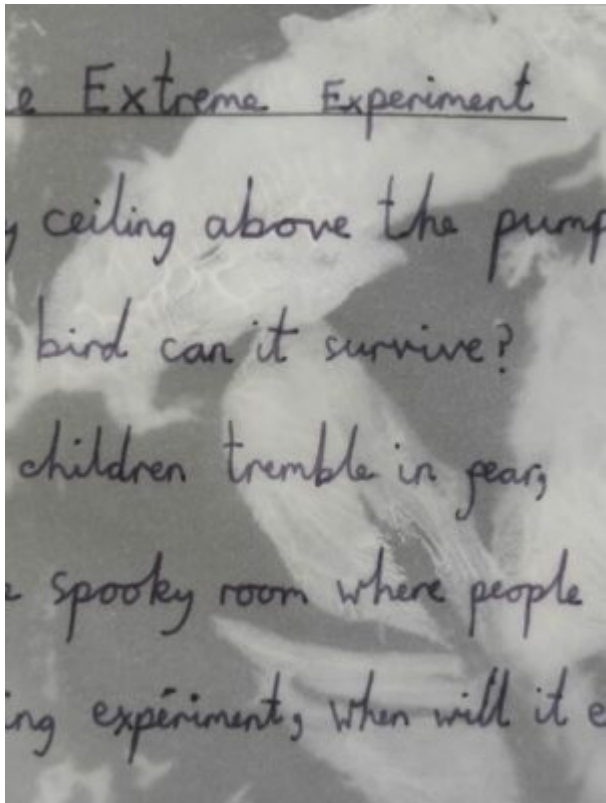 e Extreme Experiment
y ceiling above the pump
bird can it survive?
children tremble in fear,
e spooky room where people
ing experiment, when will it e